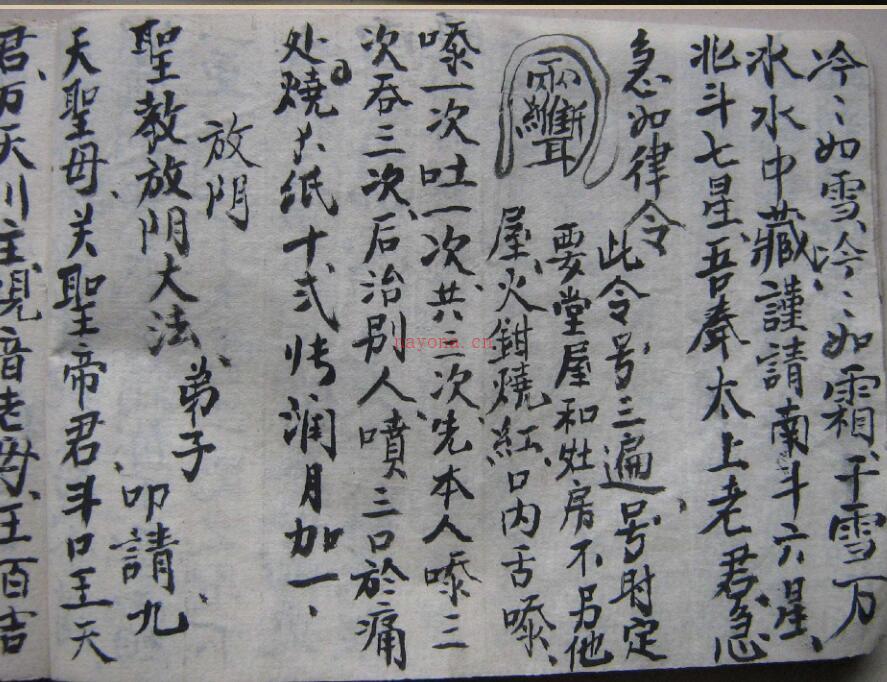 冷〻如雪、冷〻如霜、千雪万
冰水中藏謹請南斗六星、
北斗七星、吾奉太上老君、急
急如律令
此令号三遍、号时定
要堂屋和灶房不另他
屋、火鉗燒紅、口内舌嚓、
嚓一次吐一次、共三次、先本人嚓三
次吞三次、后治别人噴三口於痛
处、燒纸十弍帋润月加一、
放阴
聖教放阴大法、弟子、叩請九
天聖母、关聖帝君、斗口王天
君、万天川主、观音老母、王百吉
nayona.cn